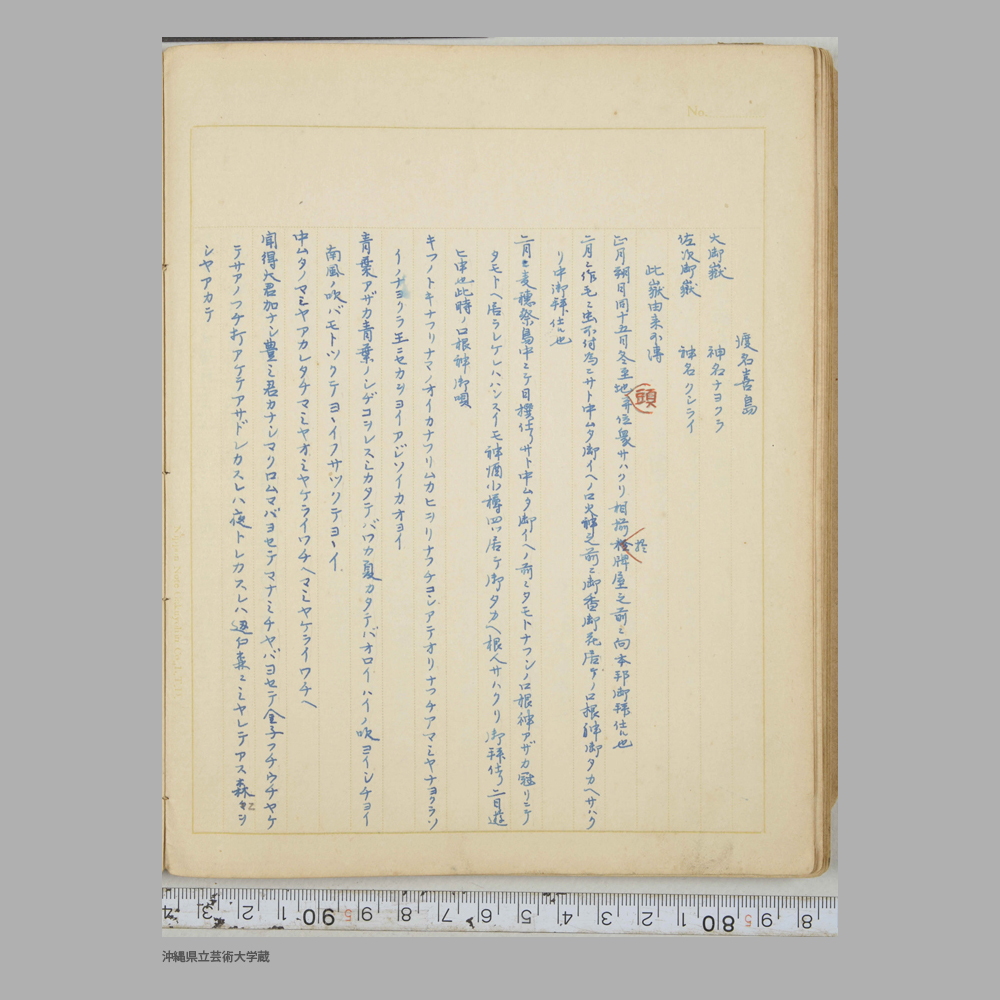 渡名喜島
大御嶽　神名ナヨクラ
佐次御嶽　神名クシライ
此嶽由来不傳
正月朔日同十五日冬至地頭并位衆サハクリ相揃拴牌屋之前ニ向本邦御拝仕ル也
拴
二月ニ作毛ニ虫不付為ニサト中ムタ御イヘノロ火神之前ニ御香御花居ゲノロ根神御タカヘサハク
リ中御拝仕ル也
二月ニ麦穂祭島中ニテ日撰仕リサト中ムタ御イヘノ前ニタモトナフシノロ根神アザカ冠リニテ
タモトヘ居ラレケレハハンスイモ神酒小樽四ツ居ケ御タカヘ根人サハクリ御拝仕リ二日遊
ヒ申也此時ノロ根神御唄
キフノトキナフリナマノオイカナフリムカヒヲリナフチコシアテオリナフチアマミヤナヨクラソ
イノナヨクラ王ニセカヲヨイアジソイカオヨイ
青葉アザカ青葉ノシヂコシレスミカタテバワカ夏カタテバオロイハイノ吹ヨイシチヨイ
南風ノ吹バモトツクテヨヽイフサツクテヨヽイ
中ムタノマミヤアカレタチマミヤオミヤケライワチヘマミヤケライワチヘ
聞得大君加ナシ豊ミ君カナシマクロムマバヨセテマナミチヤバヨセテ金子フチウチヤケ
テサアノフチ打アケテアサドレカスレハ夜トレカスレハ辺仁森ニミヤレテアス森ニヲ
シヤアカテ
沖縄県立芸術大学蔵